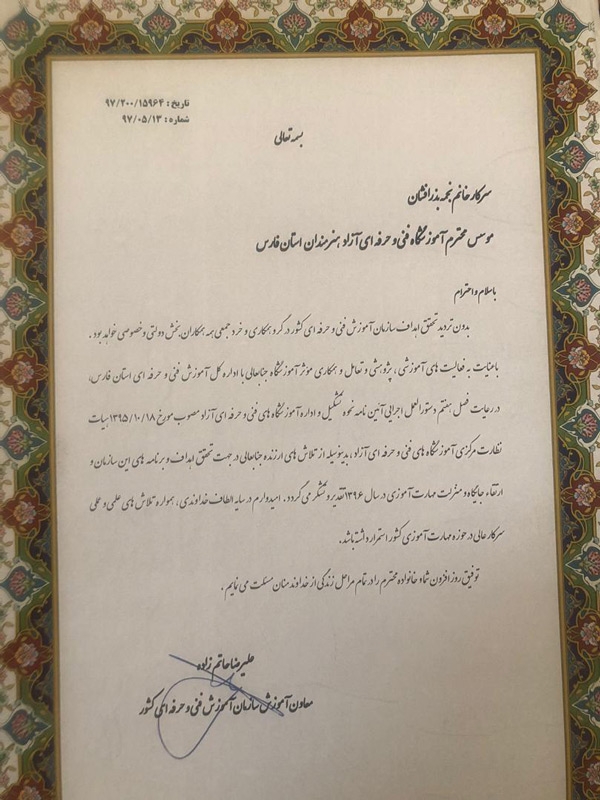 تاریخ : ۹۷/۲۰۰/۱۵۹۶۴
شماره : ۹۷/۰۵/۱۳
بسمه تعالی
سرکار خانم نجمه بذرافشان
موسس محترم آموزشگاه فنی و حرفه ای آزاد هنرمندان استان فارس
باسلام و احترام
بدون تردید تحقق اهداف سازمان آموزش فنی و حرفه ای کشور در گرو همکاری و خرد جمعی همه همکاران بخش دولتی و خصوصی خواهد بود .
باعنایت به فعالیت های آموزشی ، پژوهشی و تعامل و همکاری مؤثر آموزشگاه جنابعالی با اداره کل آموزش فنی و حرفه ای استان فارس،
در رعایت فصل هفتم دستورالعمل اجرایی آئین نامه نحوه تشکیل و اداره آموزشگاه های فنی و حرفه ای آزاد مصوب مورخ ۱۳۹۵/۱۰/۱۸ هیات
نظارت مرکزی آموزشگاه های فنی و حرفه ای آزاد ، بدینوسیله از تلاش های ارزنده جنابعالی در جهت تحقق اهداف و برنامه های این سازمان و
ارتقاء جایگاه و منزلت مهارت آموزی در سال ۱۳۹۶ تقدیر و تشکر می گردد . امیدوارم در سایه الطاف خداوندی ، همواره تلاش های علمی و عملی
سرکار عالی در حوزه مهارت آموزی کشور استمرار داشته باشد.
توفیق روز افزون شما و خانواده محترم را در تمام مراحل زندگی از خداوند منان مسئلت می نمایم .
علیرضا حاتم زاده
معاون آموزش سازمان آموزش فنی و حرفه ای کشور